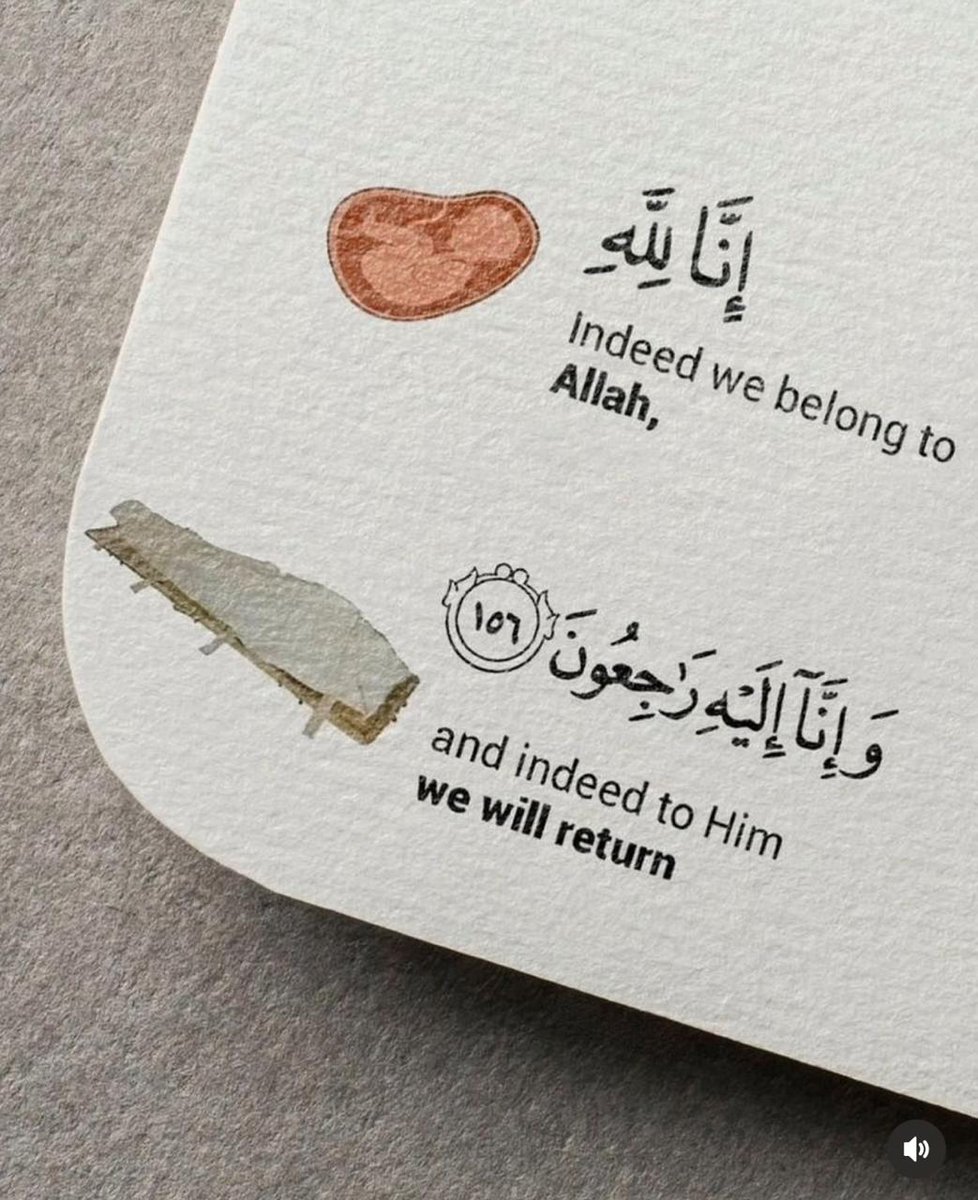 إِنَّا لِلَّهِ
Indeed we belong to
Allah,
وَإِنَّآ إِلَيْهِ رَٰجِعُونَ ١٥٦
and indeed to Him
we will return